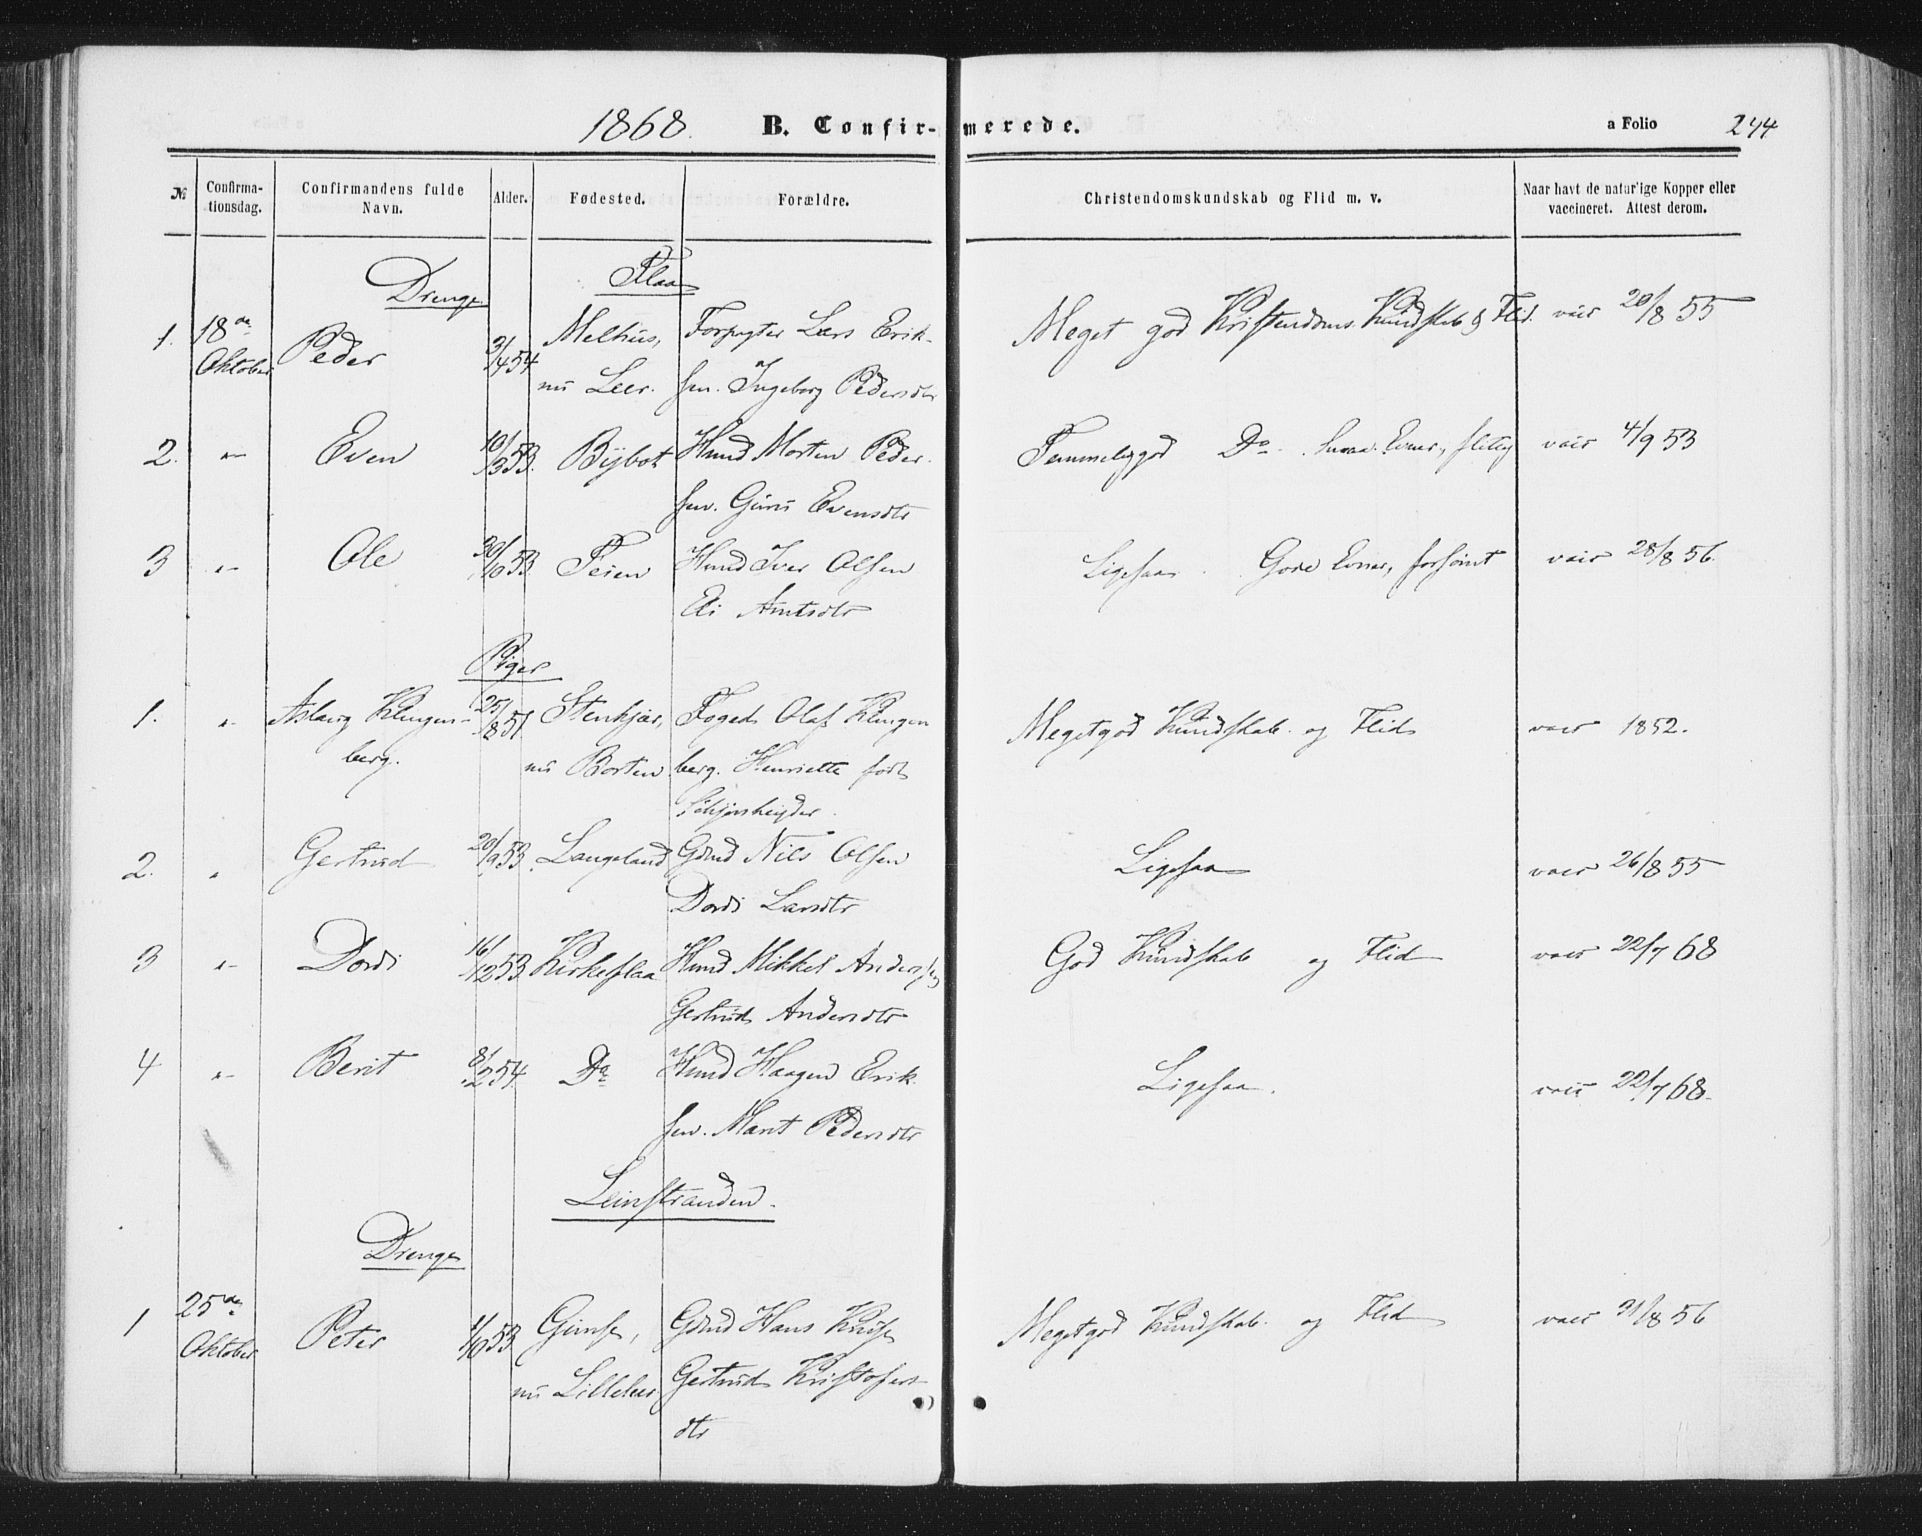 1868. B. Confir- merede. a Folio 244
№ Confirma-tionsdag. Confirmandens fulde Navn. Alder. Fødested. Forældre. Christendomskundskab og Flid m. v. Naar havt de natur'ige Kopper eller vaccineret. Attest derom.
Drenge Flaa
1. 18de Peder 3/4 54 Melhus, Forpagter Lars Erik- Meget god Kristendoms Kundskab & Flid. vacc 20/8 55
Oktober nu Leer. sen. Ingeborg Pedersdtr
2. " Even 10/3 53. Bybot Husmd Morten Peder- Temmelig god Do. Smaa Evner, flittig vacc 4/9 53
sen. Guru Evensdtr
3 " Ole 30/10 53 Husmd Iver Olsen Ligesaa. Gode Evner, forsømt vacc 28/8 56.
Eli Arntsdtr
Piger
1. " Aslaug Klingen- 25/8 51 Stenkjær, Foged Olaf Klingen Meget god Kundskab og Flid vacc 1852.
berg. nu Borten berg. Henriette født
Schjønheyder.
2. " Gertrud 20/9 53. Langeland Grmd Nils Olsen Ligesaa vacc 26/8 55
Dordi Larsdtr
3 " Dordi 16/12 53 Kirkeflaa Husmd Mikkel Andersen God Kundskab og Flid vacc 22/7 68
Gertrud Andersdtr
4 " Berit 8/2 54. Do Husmd Haagen Erik- Ligesaa. vacc 22/7 68.
sen. Marit Pedersdtr
Leinstranden.
Drenge
1 25de Peter 1/10 53 Gimse, Grmd Hans Kruse Meget god Kundskab og Flid vacc 31/8 56
Oktober nu Lilleler Gertrud Kristofers
dtr